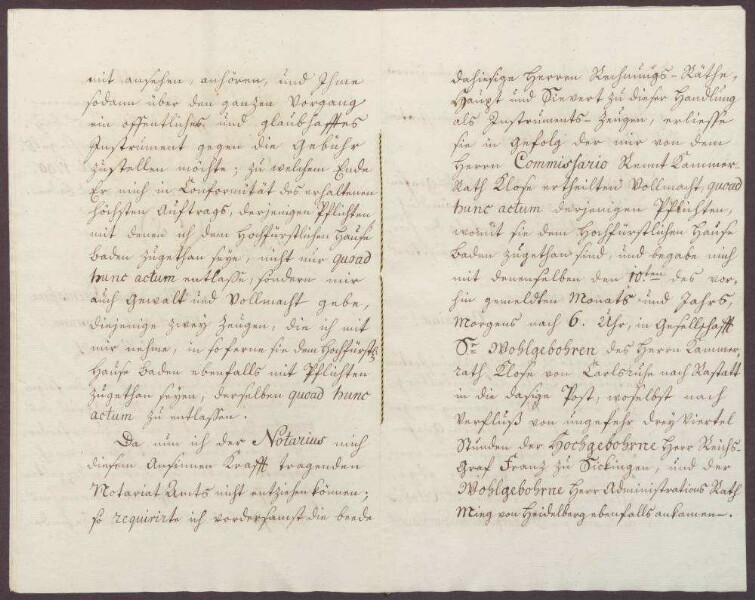 mit ansehen, anhören, und Ihme
sodann über den ganzen Vorgang
ein offentliches und glaubhafftes
Instrument gegen die Gebühr
zustellen möchte; zu welchem Ende
Er mich in Conformität des erhaltenen
höchsten Auftrags, derjenigen Pflichten
mit denen ich dem Hochfürstlichen Hause
Baden zugethan seye, nicht nur quoad
hunc actum entlasse, sondern mir
auch Gewalt und Vollmacht gebe,
diejenige zwey Zeugen, die ich mit
mir nehme, in soferne sie dem Hochfürstl.
Hause Baden ebenfalls mit Pflichten
zugethan seyen, derselben quoad hunc
actum zu entlassen.
Da nun ich der Notarius mich
diesem Ansinnen Krafft tragenden
Notariat Amts nicht entziehen können;
so requirirte ich vordersamst die beede
dahiesige Herren Rechnungs-Räthe,
Haupt und Sievert zu dieser Handlung
als Instruments-Zeugen, erliesse
sie in Gefolg der mir von dem
Herrn Commissario Rennt Kammer-
Rath Klose ertheilten Vollmacht, quoad
hunc actum derjenigen Pflichten,
womit sie dem Hochfürstlichen Hause
Baden zugethan sind, und begabe mich
mit denenselben den 10.ten des vor-
hin gemeldten Monats und Jahrs,
Morgens nach 6. Uhr, in Gesellschafft
Sr. Wohlgebohren des Herrn Kammer-
rath Klose von Carlsruhe nach Rastatt
in die dasige Post, woselbst nach
Verfluß von ungefehr drey Viertel
Stunden der Hochgebohrne Herr Reichs-
Graf Franz zu Sickingen, und der
Wohlgebohrne Herr Administrations Rath
Mieg von Heidelberg ebenfalls ankamen.